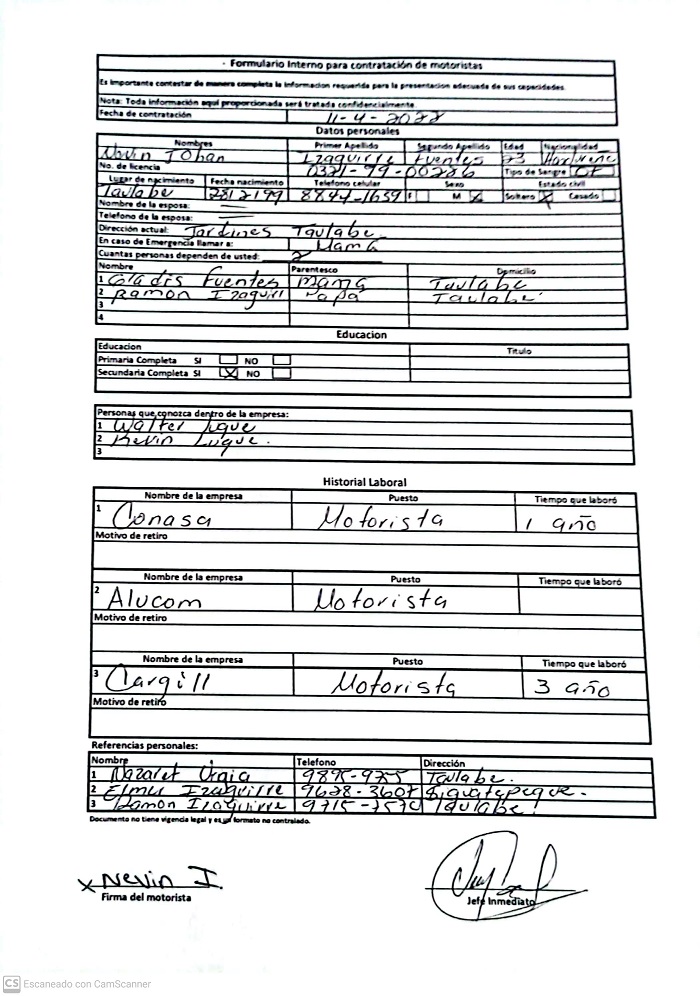 - Formulario Interno para contratación de motoristas
Es importante contestar de manera completa la informacion requerida para la presentacion adecuada de sus capacidades.
Nota: Toda información aquí proporcionada será tratada confidencialmente.
Fecha de contratación 11-4-2022
Datos personales
Nombres Primer Apellido Segundo Apellido Edad Nacionalidad
Nevin Johan Izaguirre Fuentes 23
No. de licencia 0321-99-00286 Tipo de Sangre
Lugar de nacimiento Fecha nacimiento Telefono celular Sexo Estado civil
Taulabe 8844-1659 F M X Soltero X Casado
Nombre de la esposa:
Telefono de la esposa:
Dirección actual: Jardines Taulabe
En caso de Emergencia llamar a: Mama
Cuantas personas dependen de usted: 2
Nombre Parentesco Domicilio
1 Gladis Fuentes Mama Taulabe
2 Ramon Izaguirr Papa Taulabe
3
4
Educacion
Educacion Titulo
Primaria Completa SI NO
Secundaria Completa SI X NO
Personas que conozca dentro de la empresa:
1 Walter Luque
2 Kevin Luque.
3
Historial Laboral
Nombre de la empresa Puesto Tiempo que laboró
1 Conasa Motorista 1 año
Motivo de retiro
Nombre de la empresa Puesto Tiempo que laboró
2 Alucom Motorista
Motivo de retiro
Nombre de la empresa Puesto Tiempo que laboró
3 Cargill Motorista 3 año
Motivo de retiro
Referencias personales:
Nombre Telefono Dirección
1 Nazaret Taulabe.
2 Elmer Izaguirre 9628-3607 Siguatepeque.
3 Ramon Izaguirre 9715-7570 Taulabe
Documento no tiene vigencia legal y es un formato no controlado.
X Nevin I.
Firma del motorista
Jefe Inmediato
CS Escaneado con CamScanner